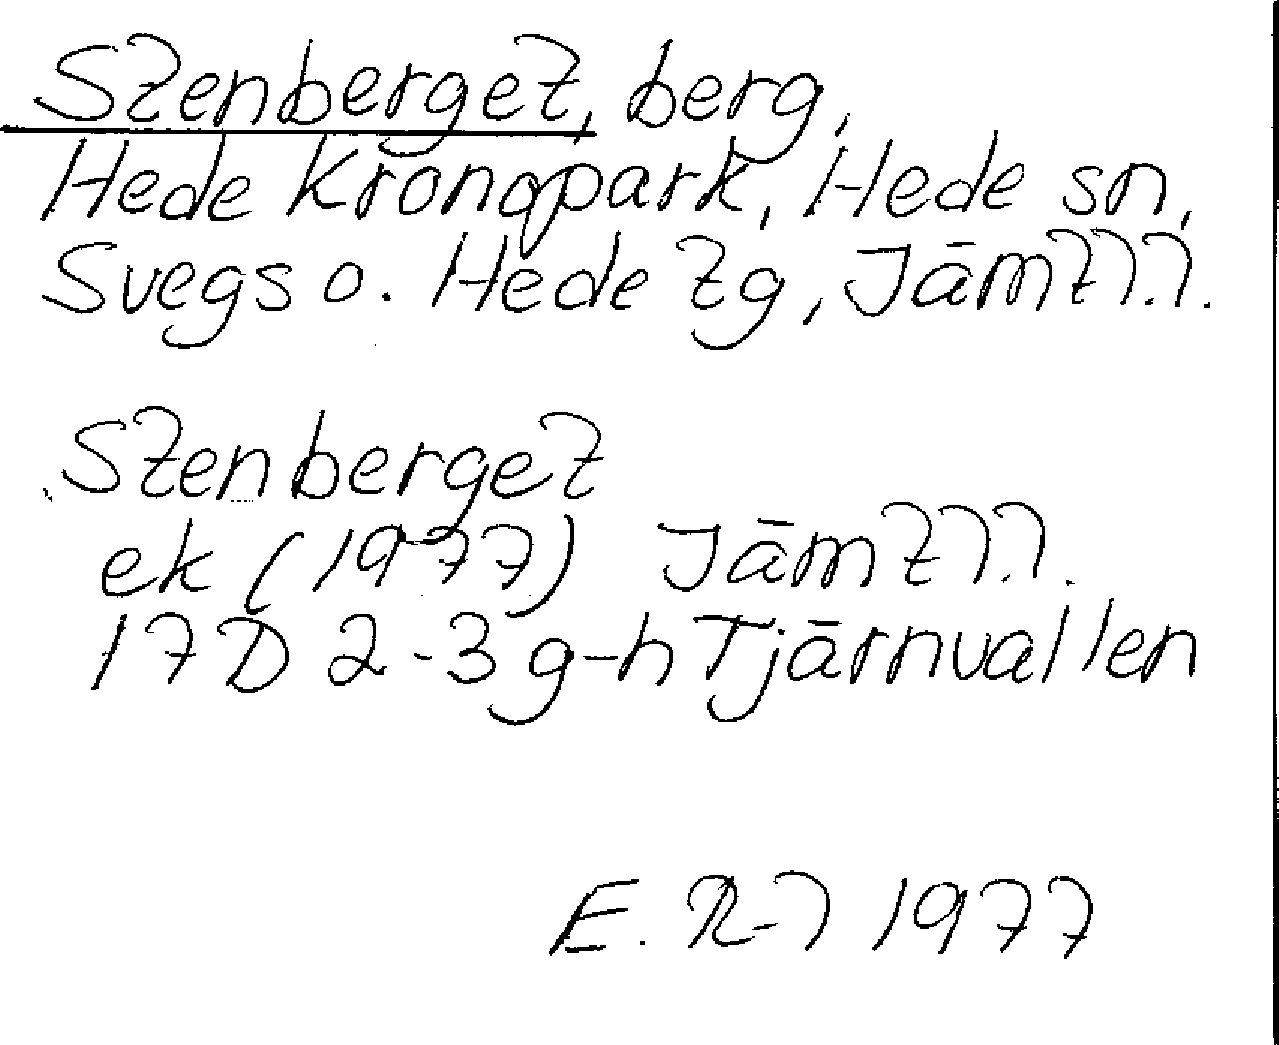 Stenberget, berg,
Hede kronopark, Hede sn,
Svegs o. Hede tg, Jämtl.l.
Stenberget
ek (1977) Jämtl.l.
17D 2-3 g-h Tjärnvallen
E. R-l 1977